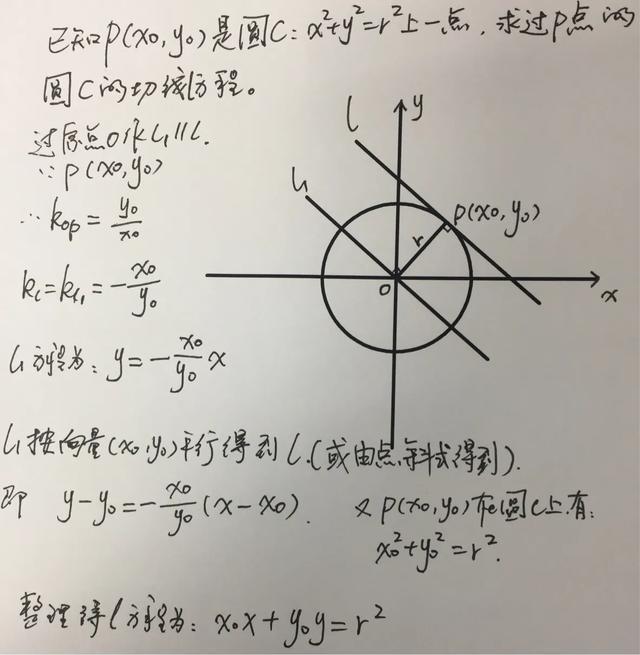 已知P(x₀,y₀)是圆C:x²+y²=r²上一点,求过P点的
圆C的切线方程。
过原点O作l₁∥l.
∵P(x₀,y₀)
∴k_op=y₀/x₀
k_l=k_l₁=-x₀/y₀
l₁方程为:y=-x₀/y₀ x
l₁按向量(x₀,y₀)平行得到l.(或由点斜式得到).
即 y-y₀=-x₀/y₀(x-x₀). 又P(x₀,y₀)在圆C上有:
x₀²+y₀²=r².
整理得l方程为:x₀x+y₀y=r²
y
l
l₁
P(x₀,y₀)
r
O
x